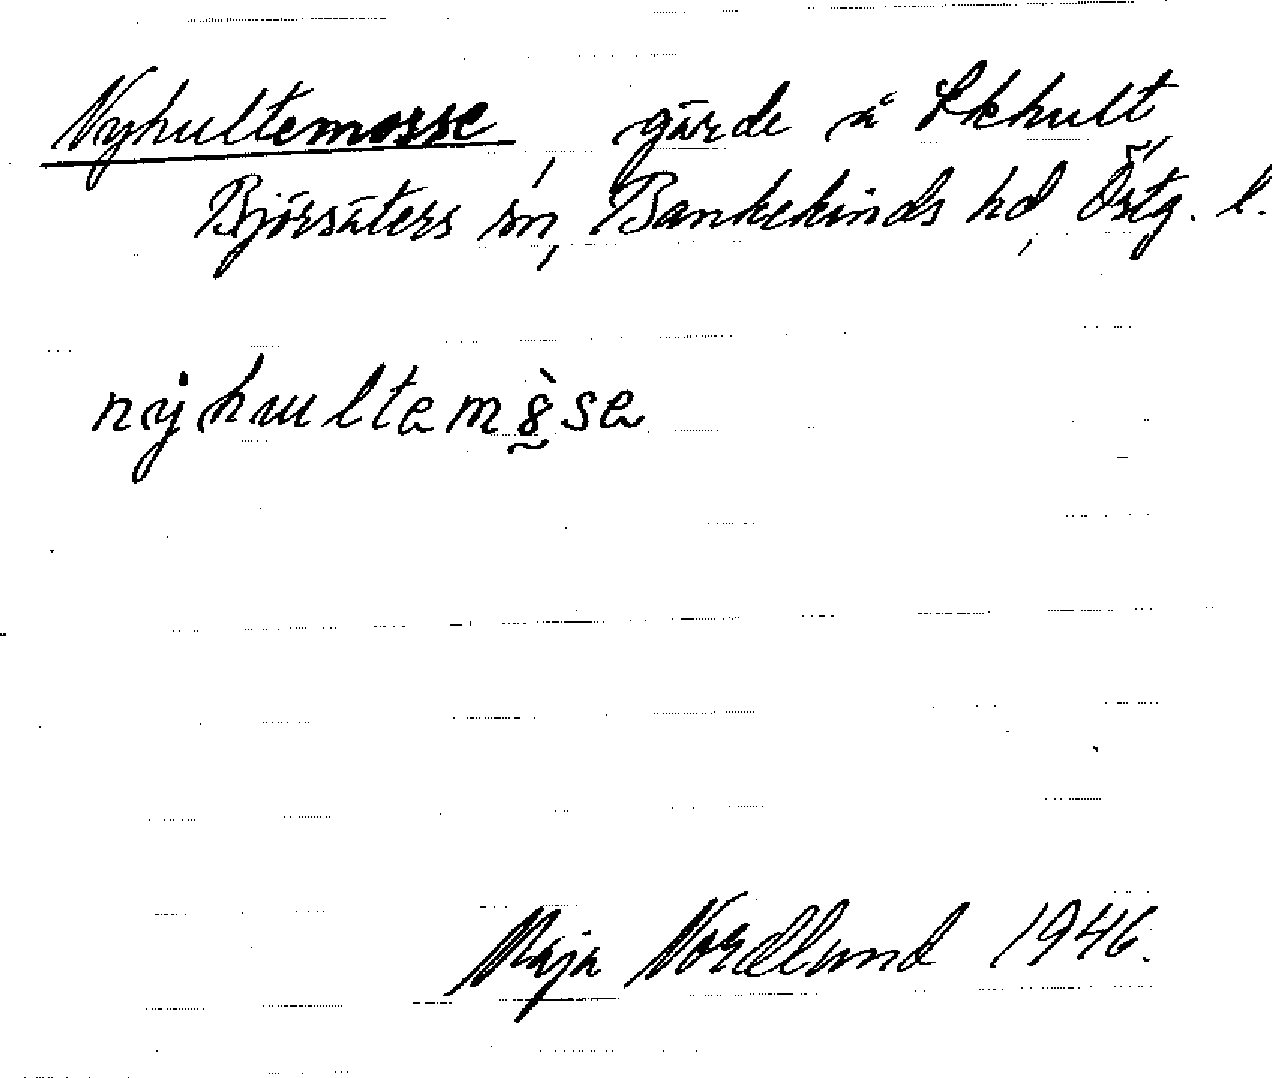 Nyhultemosse, gärde å Ekhult,
Björsäters sn, Bankekinds hd, Östg. l.
Maja Nordlund 1946.